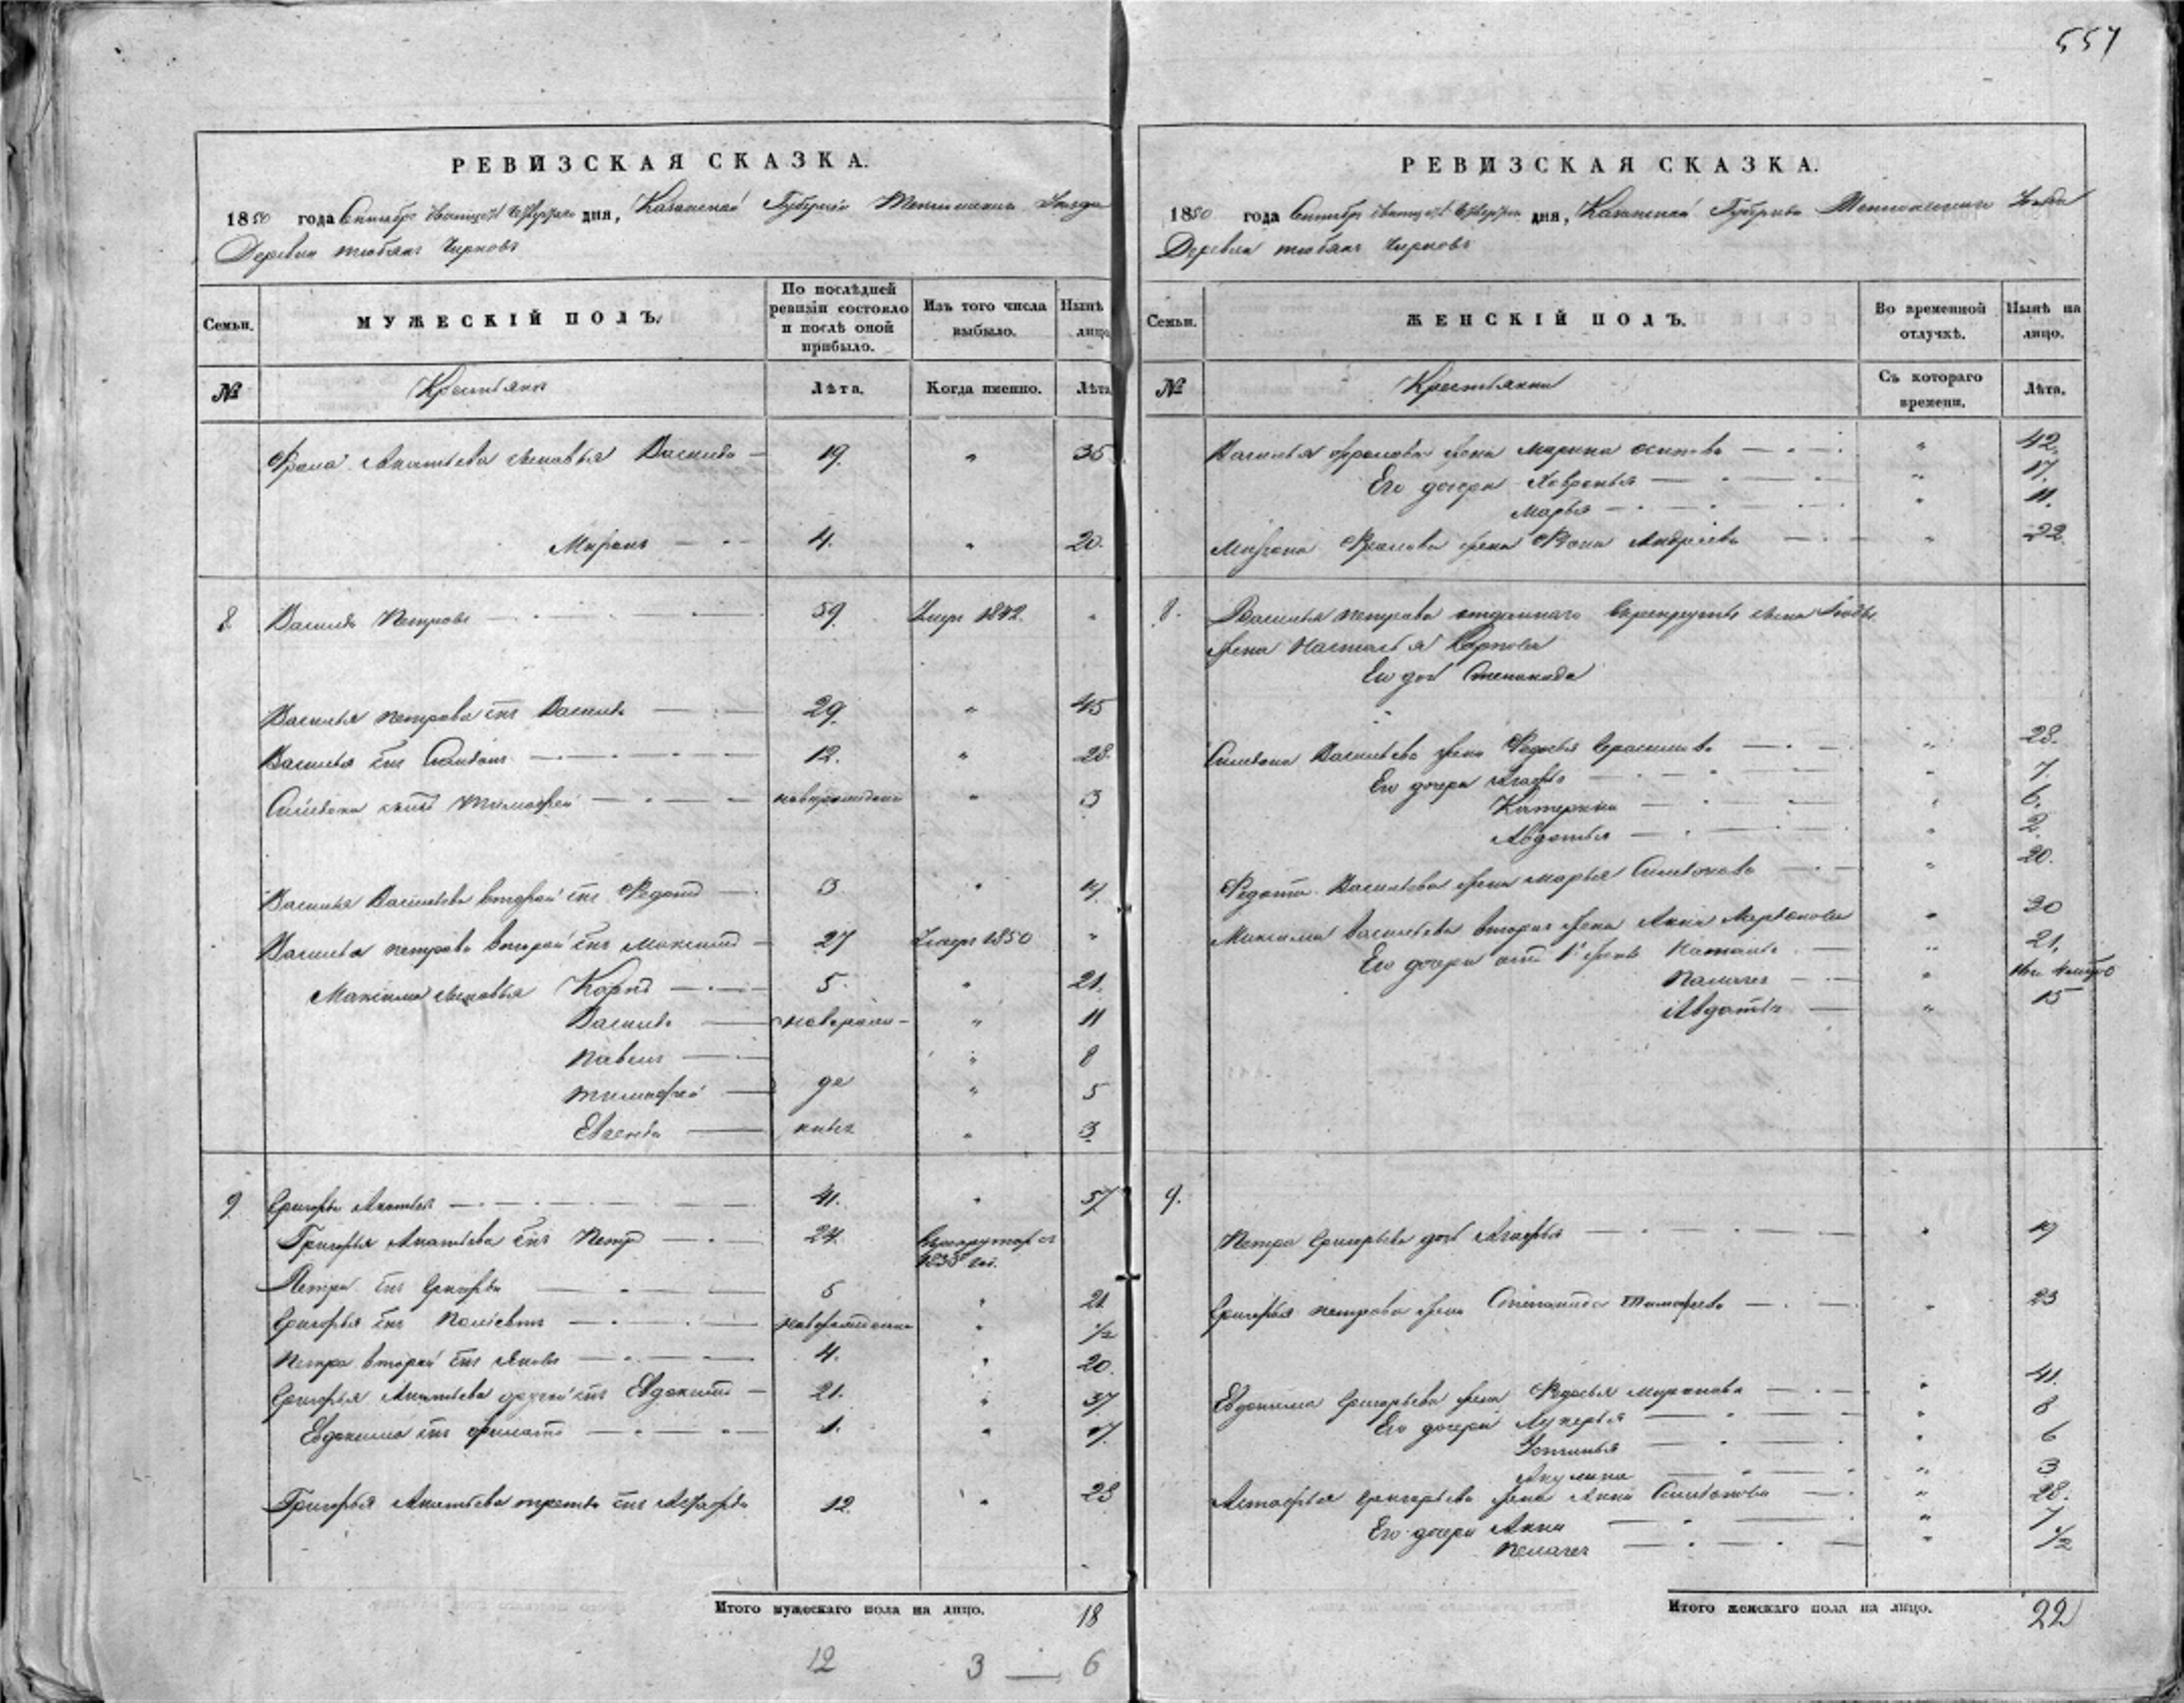 557
РЕВИЗСКАЯ СКАЗКА.
1850 года Сентября дня, Казанской Губернии Уезда
Деревни тюбяк Чирковъ
Семьи.
МУЖЕСКІЙ ПОЛЪ.
По послѣдней ревизіи состояло и послѣ оной прибыло.
Изъ того числа выбыло.
Нынѣ лицо
№
Крестьянъ
Лѣта.
Когда именно.
Лѣта
Фрола сыновья Василий 19. " 35
Миронъ 4. " 20.
8 Василий Петровъ 59. Умеръ 1842. "
Василья петрова сынъ Василий 29. " 45
Василья сынъ 12. " 28.
сынъ Тимофей новорожденъ " 3
Василья Васильева вторый сынъ Федотъ 3 " 19
Василья петрова вторый сынъ Максимъ 27 Умеръ 1850 "
Максима сыновья Карпъ 5. " 21.
Василий новорож- " 11
Павелъ " 8
тимофей де " 5
Евсевий ныя " 3
9 Григорий 41. " 57
Григорья сынъ Петръ 24. 
Петра сынъ Григорий 5 " 21
Григорья сынъ новорожденный " 1/2
Петра вторый сынъ Яковъ 4. " 20.
Григорья другой сынъ Евдокимъ 21. " 37
Евдокима сынъ филатъ 1. " 17.
Григорья третий сынъ 12. " 28
Итого мужескаго пола на лицо. 18
12 3 — 6
РЕВИЗСКАЯ СКАЗКА.
1850 года Сентября дня, Казанской Губернии Уезда
Деревни тюбяк Чирковъ
Семьи.
ЖЕНСКІЙ ПОЛЪ.
Во временной отлучкѣ.
Нынѣ на лицо.
№
Крестьянки
Съ котораго времени.
Лѣта.
Василья фролова жена Марина осипова " 42.
Его дочери Хавронья " 17.
Марья " 11.
Мирона Фролова жена Андреева " 22.
8. Василья петрова отданнаго в рекруты сына
жена Наталья Карпова
Ея дочь Степанида
Васильева жена Федосья Герасимова " 28.
Его дочери Агафья " 7.
Катерина " 6.
Авдотья " 2.
Федота Васильева жена марья " 20.
Максима Васильева вторая жена Анна " 20
Его дочери отъ 1й жены Наталья " 21.
Палагея "
Авдотья " 15
9.
Петра Григорьева дочь Агафья " 19
Григорья петрова жена Степанида Тимофеева " 23
Евдокима Григорьева жена Федосья миронова " 41.
Его дочери Лукерья " 8
Устинья " 6
Акулина " 3
Григорьева жена Анна " 28.
Его дочери Анна " 7
Пелагея " 1/2
Итого женскаго пола на лицо. 22